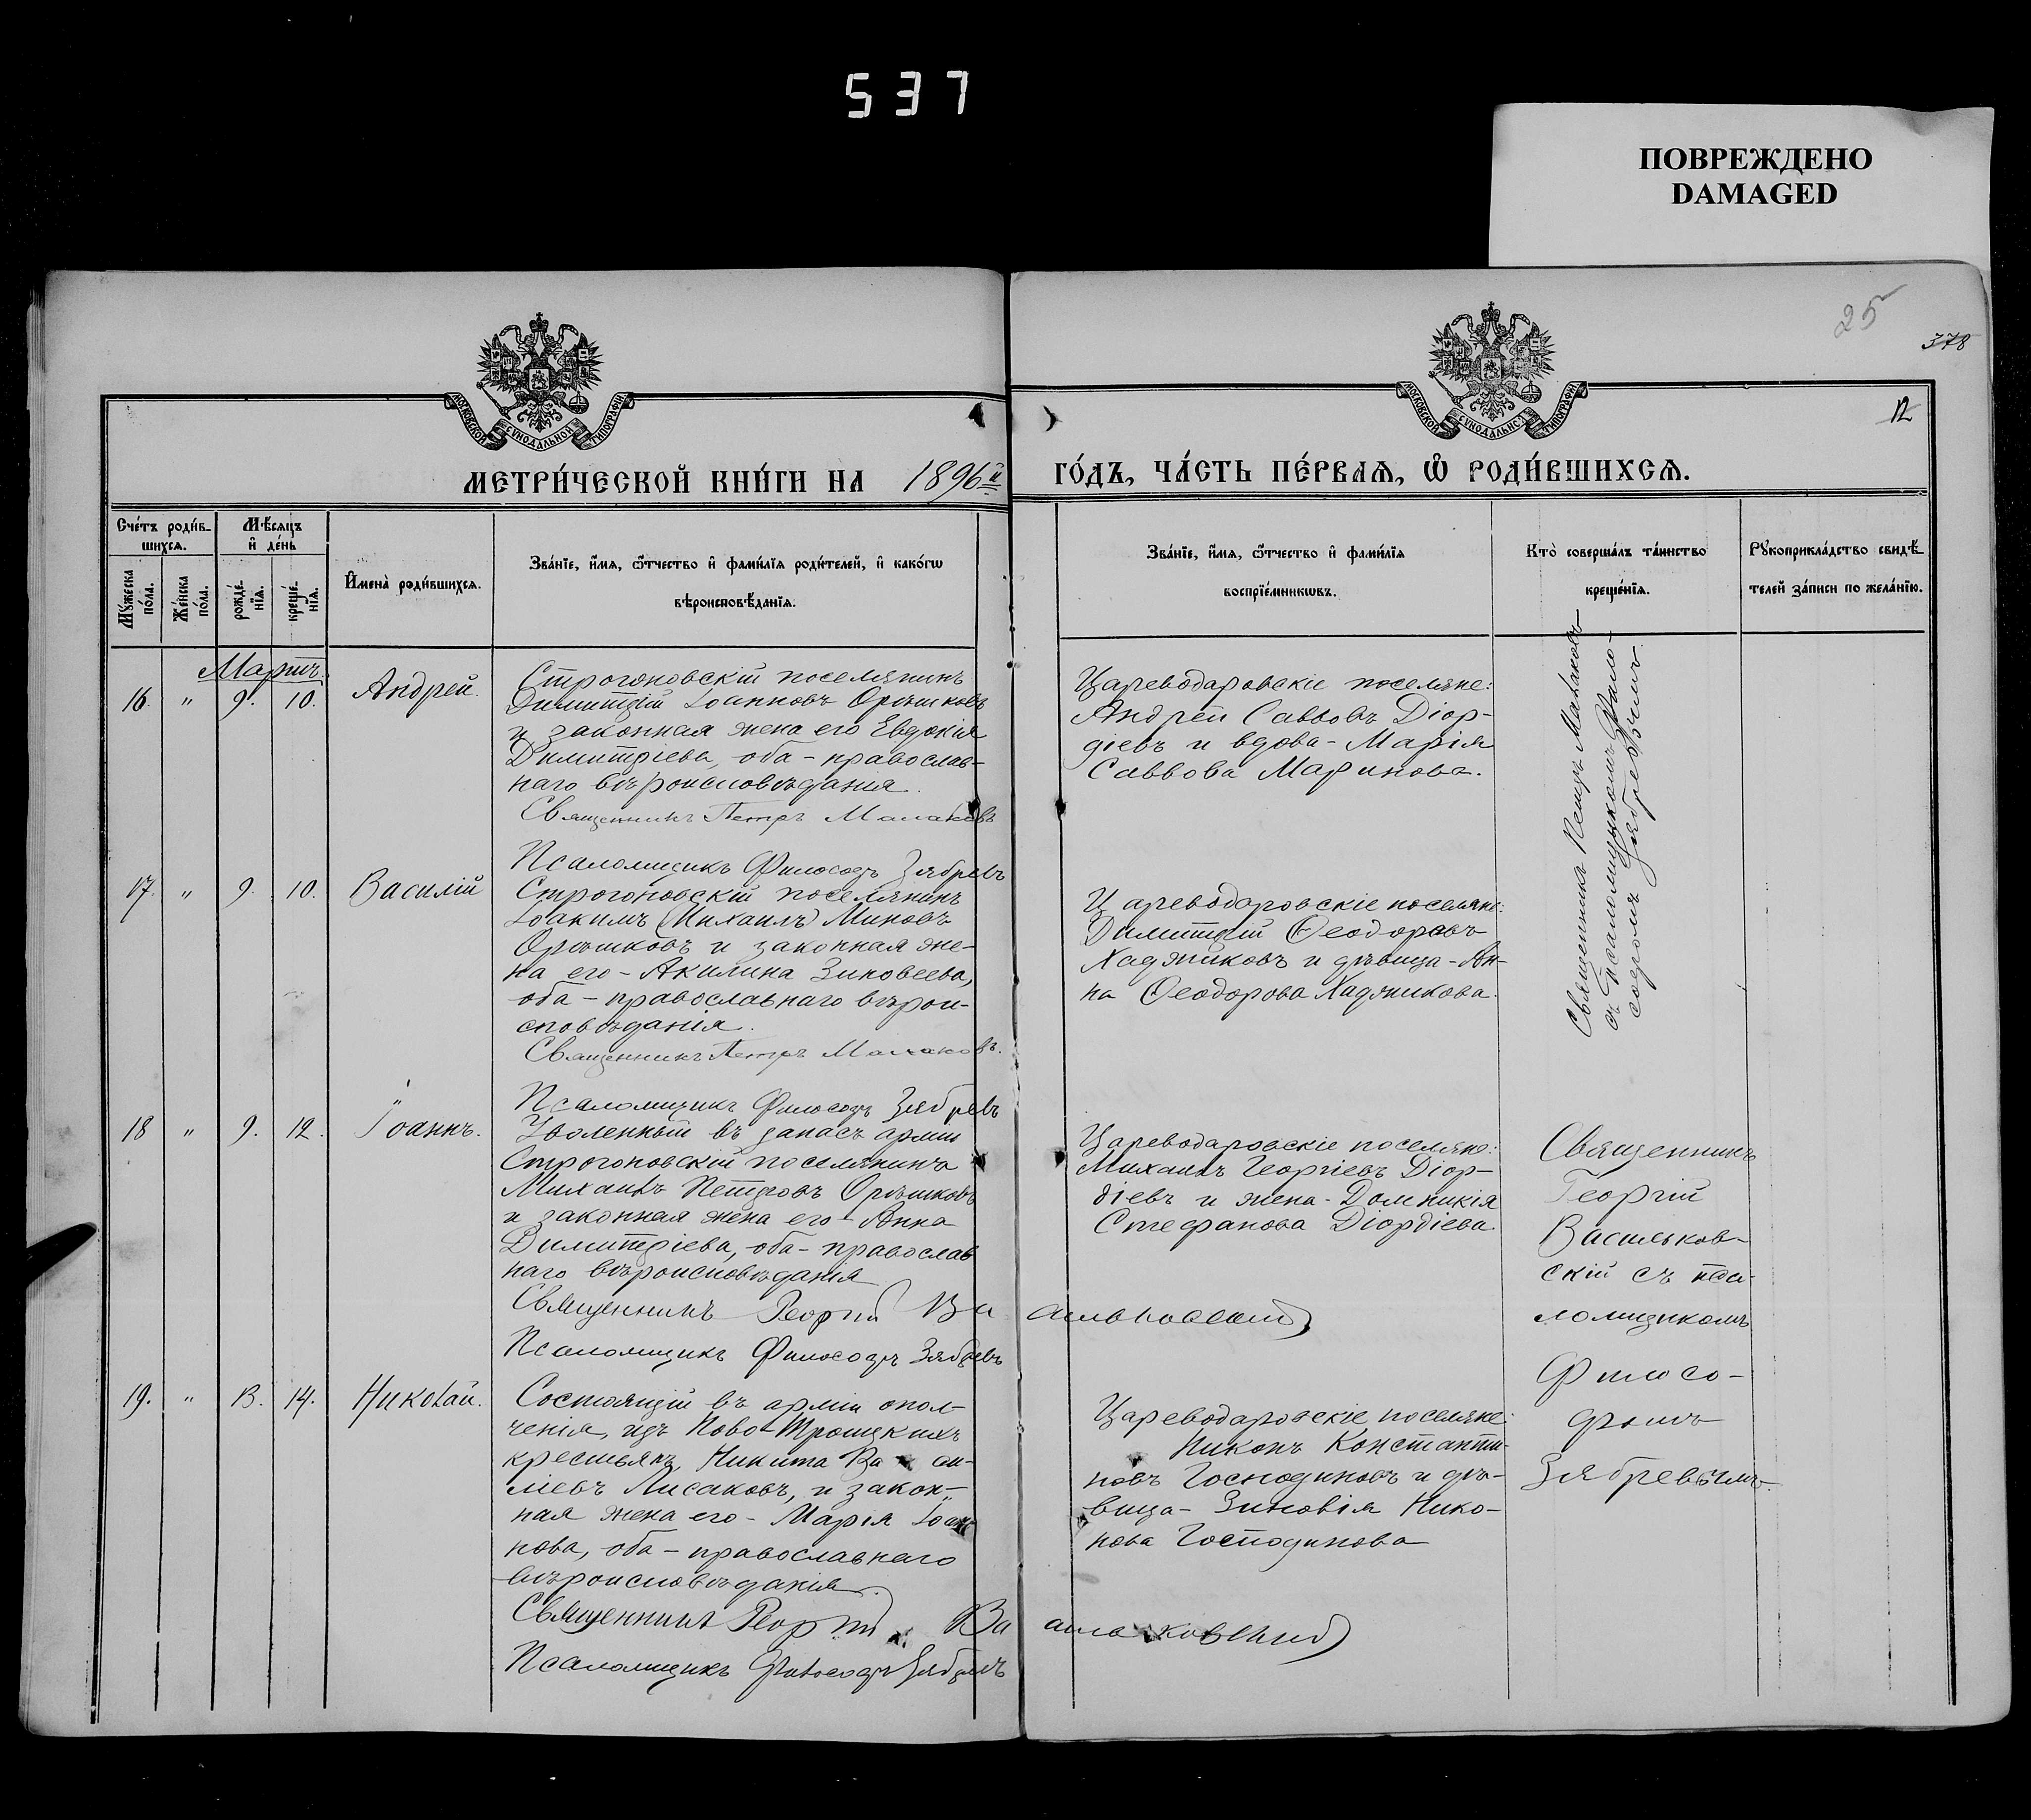 537
ПОВРЕЖДЕНО
DAMAGED
25
378
12
МОСКОВСКОЙ СѴНОДАЛЬНОЙ ТИПОГРАФІИ
МОСКОВСКОЙ СѴНОДАЛЬНОЙ ТИПОГРАФІИ
МЕТРИ́ЧЕСКОЙ КНИ́ГИ НА 1896й
ГО́ДЪ, ЧА́СТЬ ПЕ́РВАѦ, Ѽ РОДИ́ВШИХСѦ.
Сче́тъ роди́в-
шихсѧ.
Мѣ́сѧцъ
и҆ де́нь
Мꙋ́жеска по́ла.
Же́нска по́ла.
рожде́нїѧ.
креще́нїѧ.
И҆мена̀ роди́вшихсѧ.
Зва́нїе, и҆́мѧ, ѻ҆́тчество и҆ фами́лїѧ роди́телей, и҆ како́гѡ
вѣроисповѣ́данїѧ.
Зва́нїе, и҆́мѧ, ѻ҆́тчество и҆ фами́лїѧ
воспрїе́мникѡвъ.
Кто̀ соверша́лъ та́инство
креще́нїѧ.
Рꙋкоприкла́дство свидѣ́-
телей за́писи по жела́нїю.
Мартъ.
16. " 9. 10. Андрей.
Строгоновскій поселянинъ
Димитрій Іоанновъ Орѣшковъ
и законная жена его Евдокія
Димитріева, оба - православ-
наго вѣроисповѣданія.
Священникъ Петръ Малаховъ
Псаломщикъ Философъ Зябревъ
Цареводаровскіе поселяне:
Андрей Саввовъ Діор-
діевъ и вдова - Марія
Саввова Маринова.
Священникъ Петръ Малаховъ
съ псаломщикомъ Фило-
софомъ Зябревымъ.
17. " 9. 10. Василій
Строгоновскій поселянинъ
Іоакимъ (Михаилъ) Миновъ
Орѣшковъ и законная же-
на его - Акилина Зиновеева,
оба - православнаго вѣрои-
сповѣданія.
Священникъ Петръ Малаховъ.
Псаломщикъ Философъ Зябревъ
Цареводаровскіе поселяне:
Димитрій Ѳеодоровъ
Хаджиковъ и дѣвица - Ан-
на Ѳеодорова Хаджикова.
18 " 9. 12. Іоаннъ.
Уволенный въ запасъ арміи
Строгоновскій поселянинъ
Михаилъ Петровъ Орѣшковъ
и законная жена его - Анна
Димитріева, оба - православ
наго вѣроисповѣданія
Священникъ Георгій Васильковскій
Псаломщикъ Философъ Зябревъ
Цареводаровскіе поселяне:
Михаилъ Георгіевъ Діор-
діевъ и жена - Домникія
Стефанова Діордіева.
Священникъ
Георгій
Васильков-
скій съ пса-
ломщикомъ
Филосо-
фомъ
Зябревымъ.
19. " 13. 14. Николай.
Состоящій въ арміи опол-
ченія, изъ Ново-Троицкихъ
крестьянъ, Никита Васи-
ліевъ Лисаковъ, и закон-
ная жена его - Марія Іоан
нова, оба - православнаго
вѣроисповѣданія.
Священникъ Георгій Васильковскій
Псаломщикъ Философъ Зябревъ
Цареводаровскіе поселяне:
Никонъ Константи-
новъ Господиновъ и дѣ-
вица - Зиновія Нико-
нова Господинова